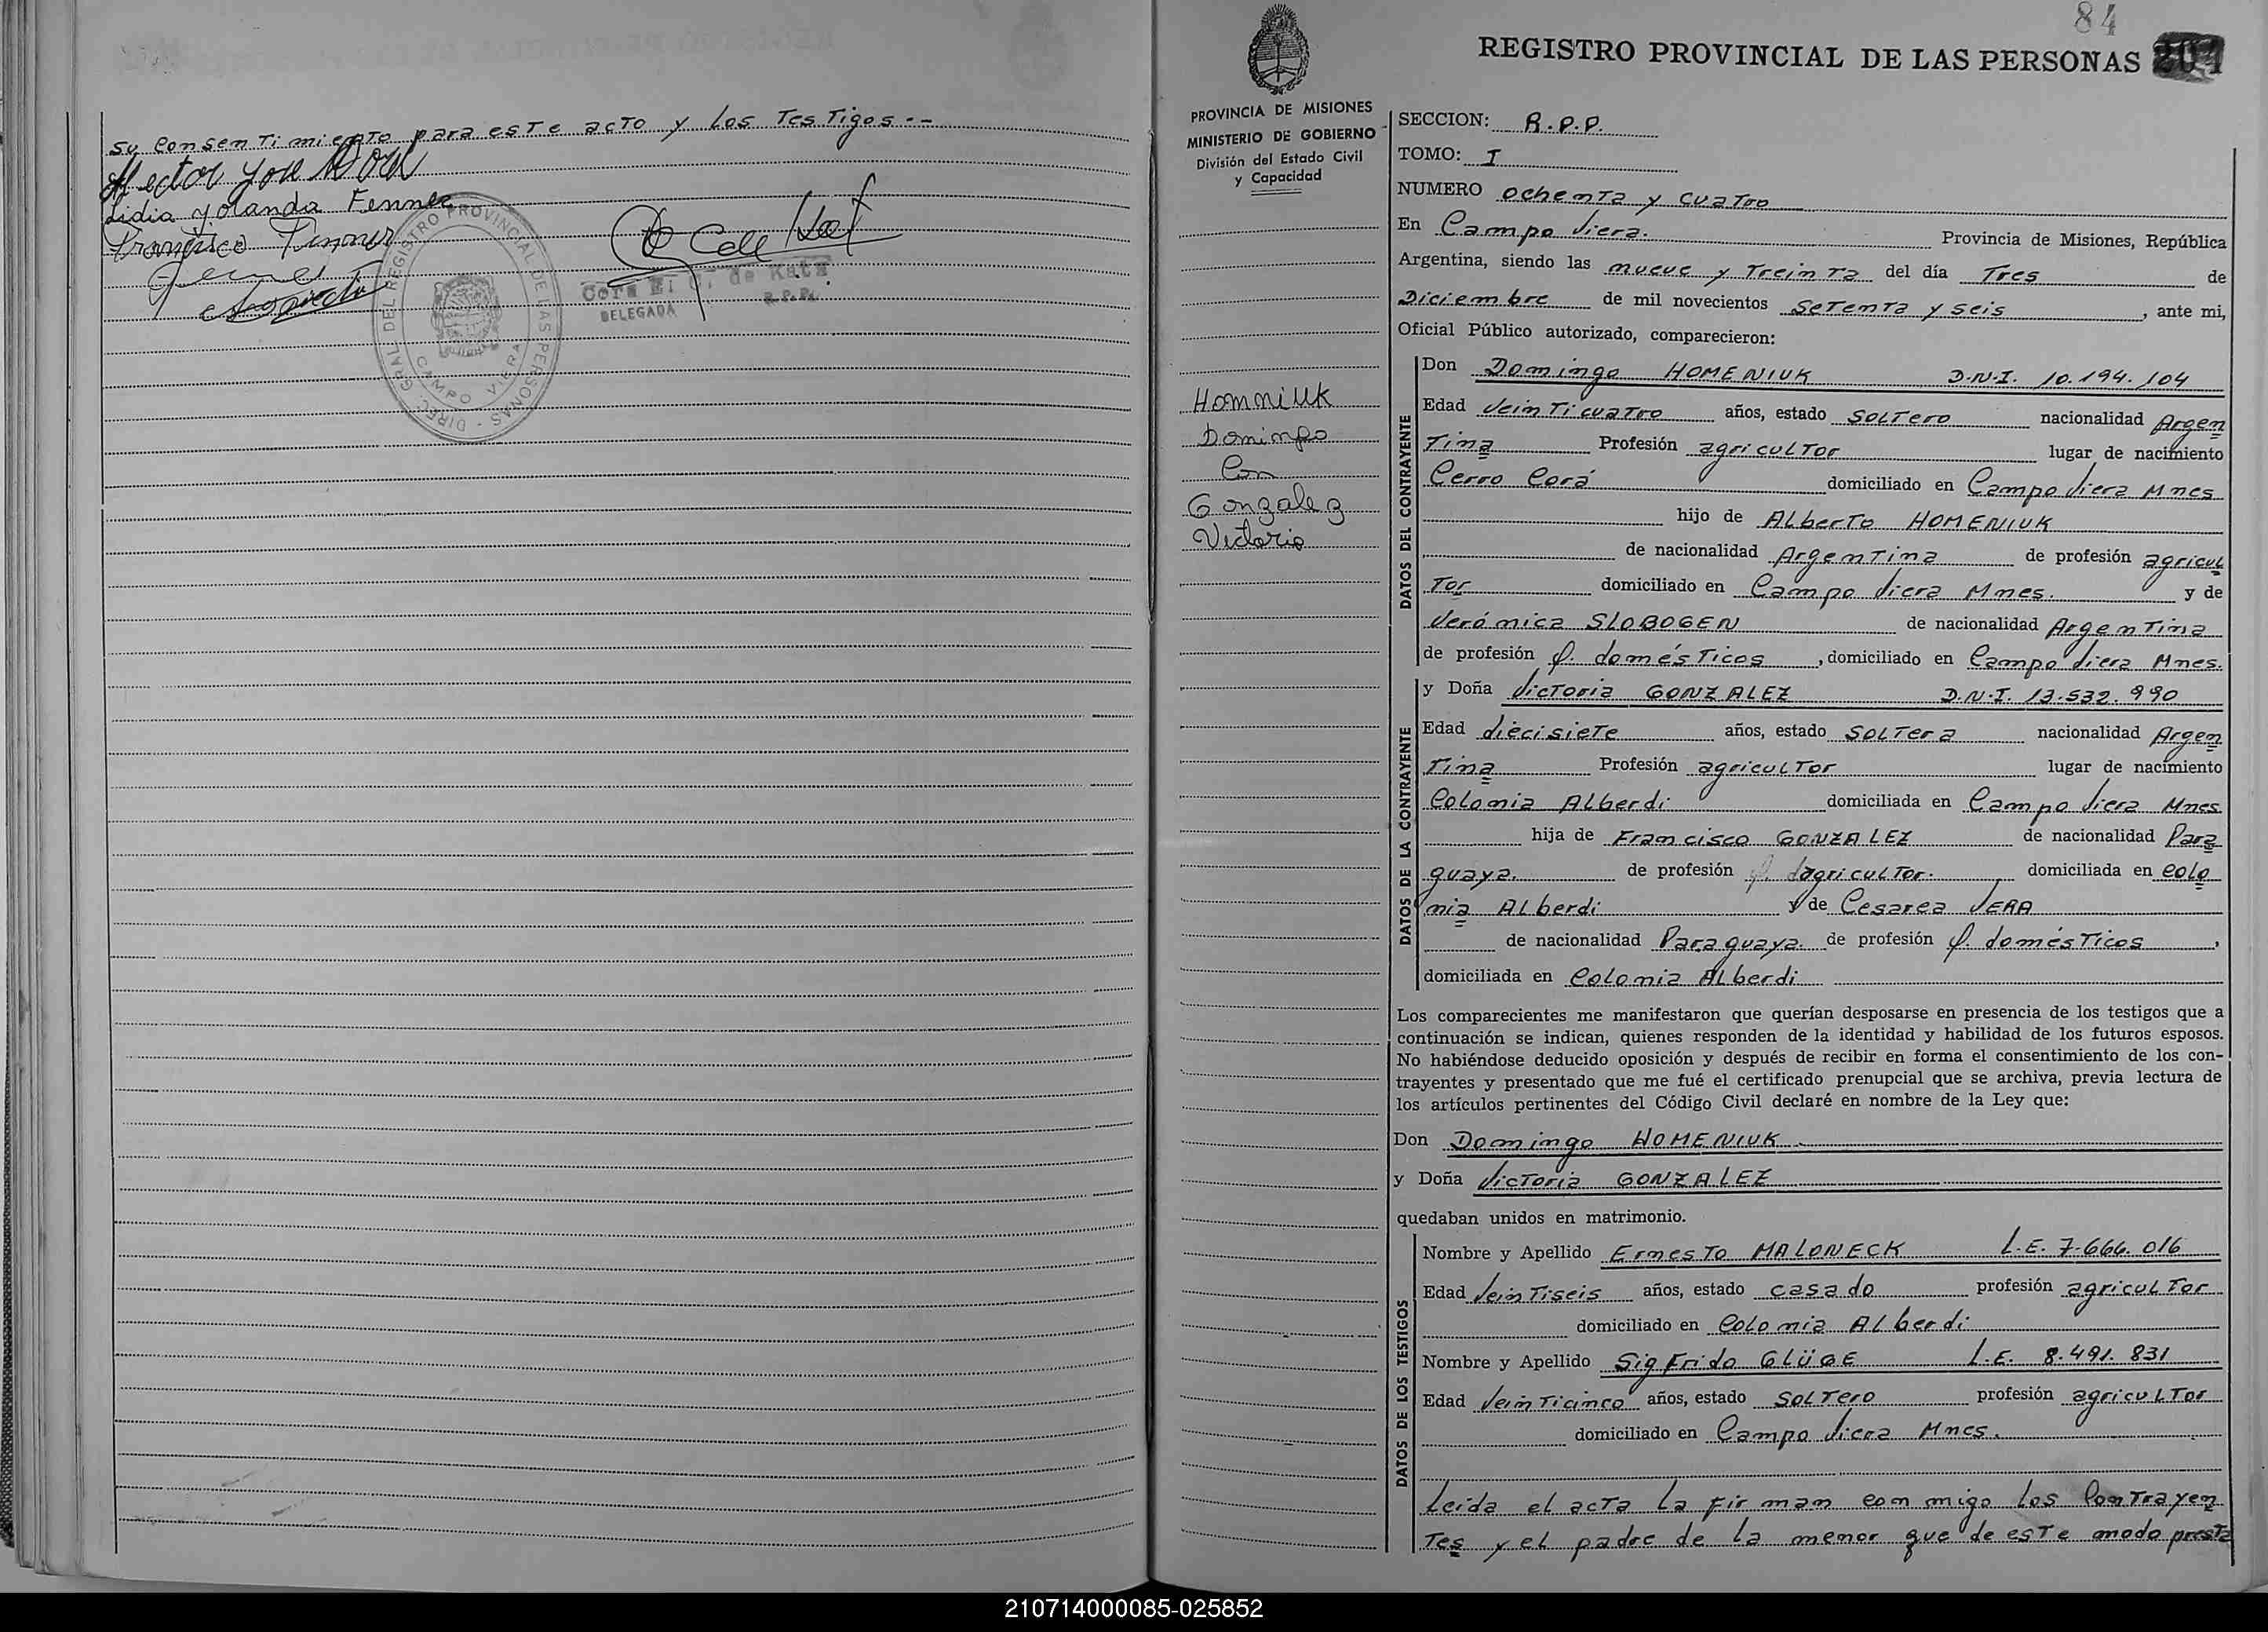 su consentimiento para este acto y los Testigos.-
Hector Jose
Lidia Yolanda Fenner
Francisco Fenner
DIREC. GRAL DEL REGISTRO PROVINCIAL DE LAS PERSONAS -
CAMPO VIERA
de Katz
DELEGADA
R.P.P.
84
REGISTRO PROVINCIAL DE LAS PERSONAS 201
PROVINCIA DE MISIONES
MINISTERIO DE GOBIERNO
División del Estado Civil
y Capacidad
Homniuk
Domingo
Con
Gonzalez
Victoria
SECCION: R.P.P.
TOMO: I
NUMERO ochenta y cuatro
En Campo Viera. Provincia de Misiones, República
Argentina, siendo las nueve y Treinta del día Tres de
Diciembre de mil novecientos Setenta y seis, ante mi,
Oficial Público autorizado, comparecieron:
DATOS DEL CONTRAYENTE
Don Domingo HOMENIUK D.N.I. 10.194.104
Edad Veinticuatro años, estado Soltero nacionalidad Argen
Tina Profesión agricultor lugar de nacimiento
Cerro Corá domiciliado en Campo Viera Mnes
hijo de Alberto HOMENIUK
de nacionalidad Argentina de profesión agricul
Tor domiciliado en Campo Viera Mnes. y de
Verónica SLOBOGEN de nacionalidad Argentina
de profesión q. domésticos, domiciliado en Campo Viera Mnes.
DATOS DE LA CONTRAYENTE
y Doña Victoria GONZALEZ D.N.I. 13.532.990
Edad diecisiete años, estado Soltera nacionalidad Argen
Tina Profesión agricultor lugar de nacimiento
Colonia Alberdi domiciliada en Campo Viera Mnes
hija de Francisco GONZALEZ de nacionalidad Para
guaya. de profesión agricultor. domiciliada en colo
nia Alberdi y de Cesarea VERA
de nacionalidad Paraguaya. de profesión q. domésticos,
domiciliada en Colonia Alberdi
Los comparecientes me manifestaron que querían desposarse en presencia de los testigos que a
continuación se indican, quienes responden de la identidad y habilidad de los futuros esposos.
No habiéndose deducido oposición y después de recibir en forma el consentimiento de los con-
trayentes y presentado que me fué el certificado prenupcial que se archiva, previa lectura de
los artículos pertinentes del Código Civil declaré en nombre de la Ley que:
Don Domingo HOMENIUK
y Doña Victoria GONZALEZ
quedaban unidos en matrimonio.
DATOS DE LOS TESTIGOS
Nombre y Apellido Ernesto MALONECK L.E. 7.666.016
Edad Veintiseis años, estado casado profesión agricultor
domiciliado en Colonia Alberdi
Nombre y Apellido Sigfrido GLÜGE L.E. 8.491.831
Edad Veinticinco años, estado Soltero profesión agricultor
domiciliado en Campo Viera Mnes.
Leida el acta la firman conmigo los Contrayen
Tes y el padre de la menor que de este modo presta
210714000085-025852